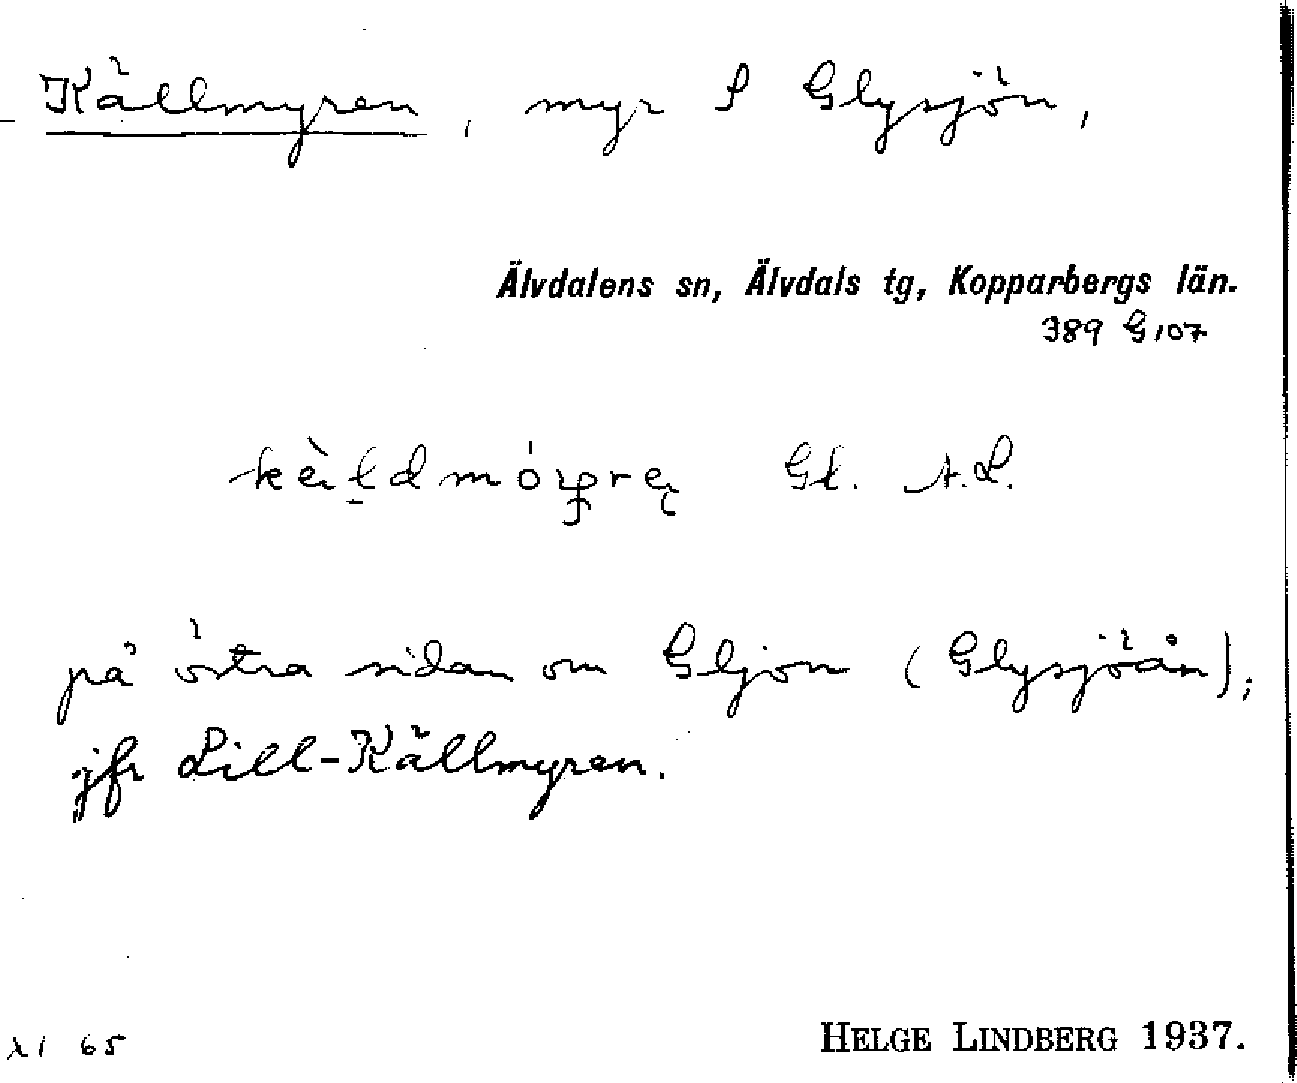 Källmyren, myr S Glysjön,
Älvdalens sn, Älvdals tg, Kopparbergs län.
389 G107
Gl. A.L.
på östra sidan om Gljon (Glysjöån);
jfr Lill-Källmyren.
XI 65
HELGE LINDBERG 1937.